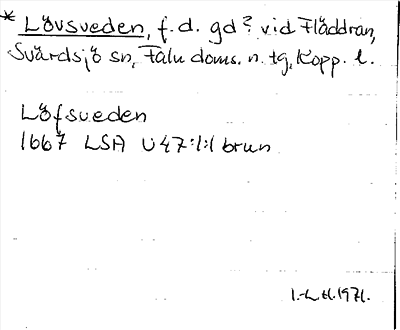 * Lövsveden, f.d. gd? vid Fläddran,
Svärdsjö sn, Falu doms. n. tg, Kopp. l.
Löfsveden
1667 LSA U47:1:1 brun
1971.